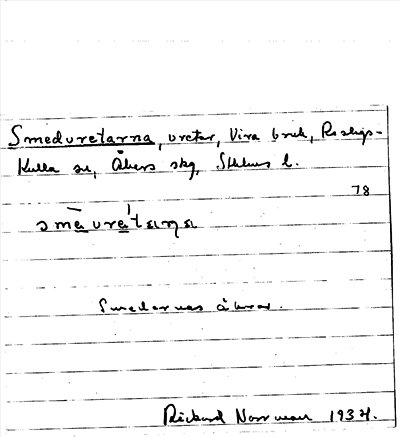 Smedvretarna, vretar, Vira bruk, Roslags-
Kulla sn, Åkers skg, Sthlms l.
78
smēvrétaɳa
Smedarnas åkrar.
Rickard Norrman 1934.